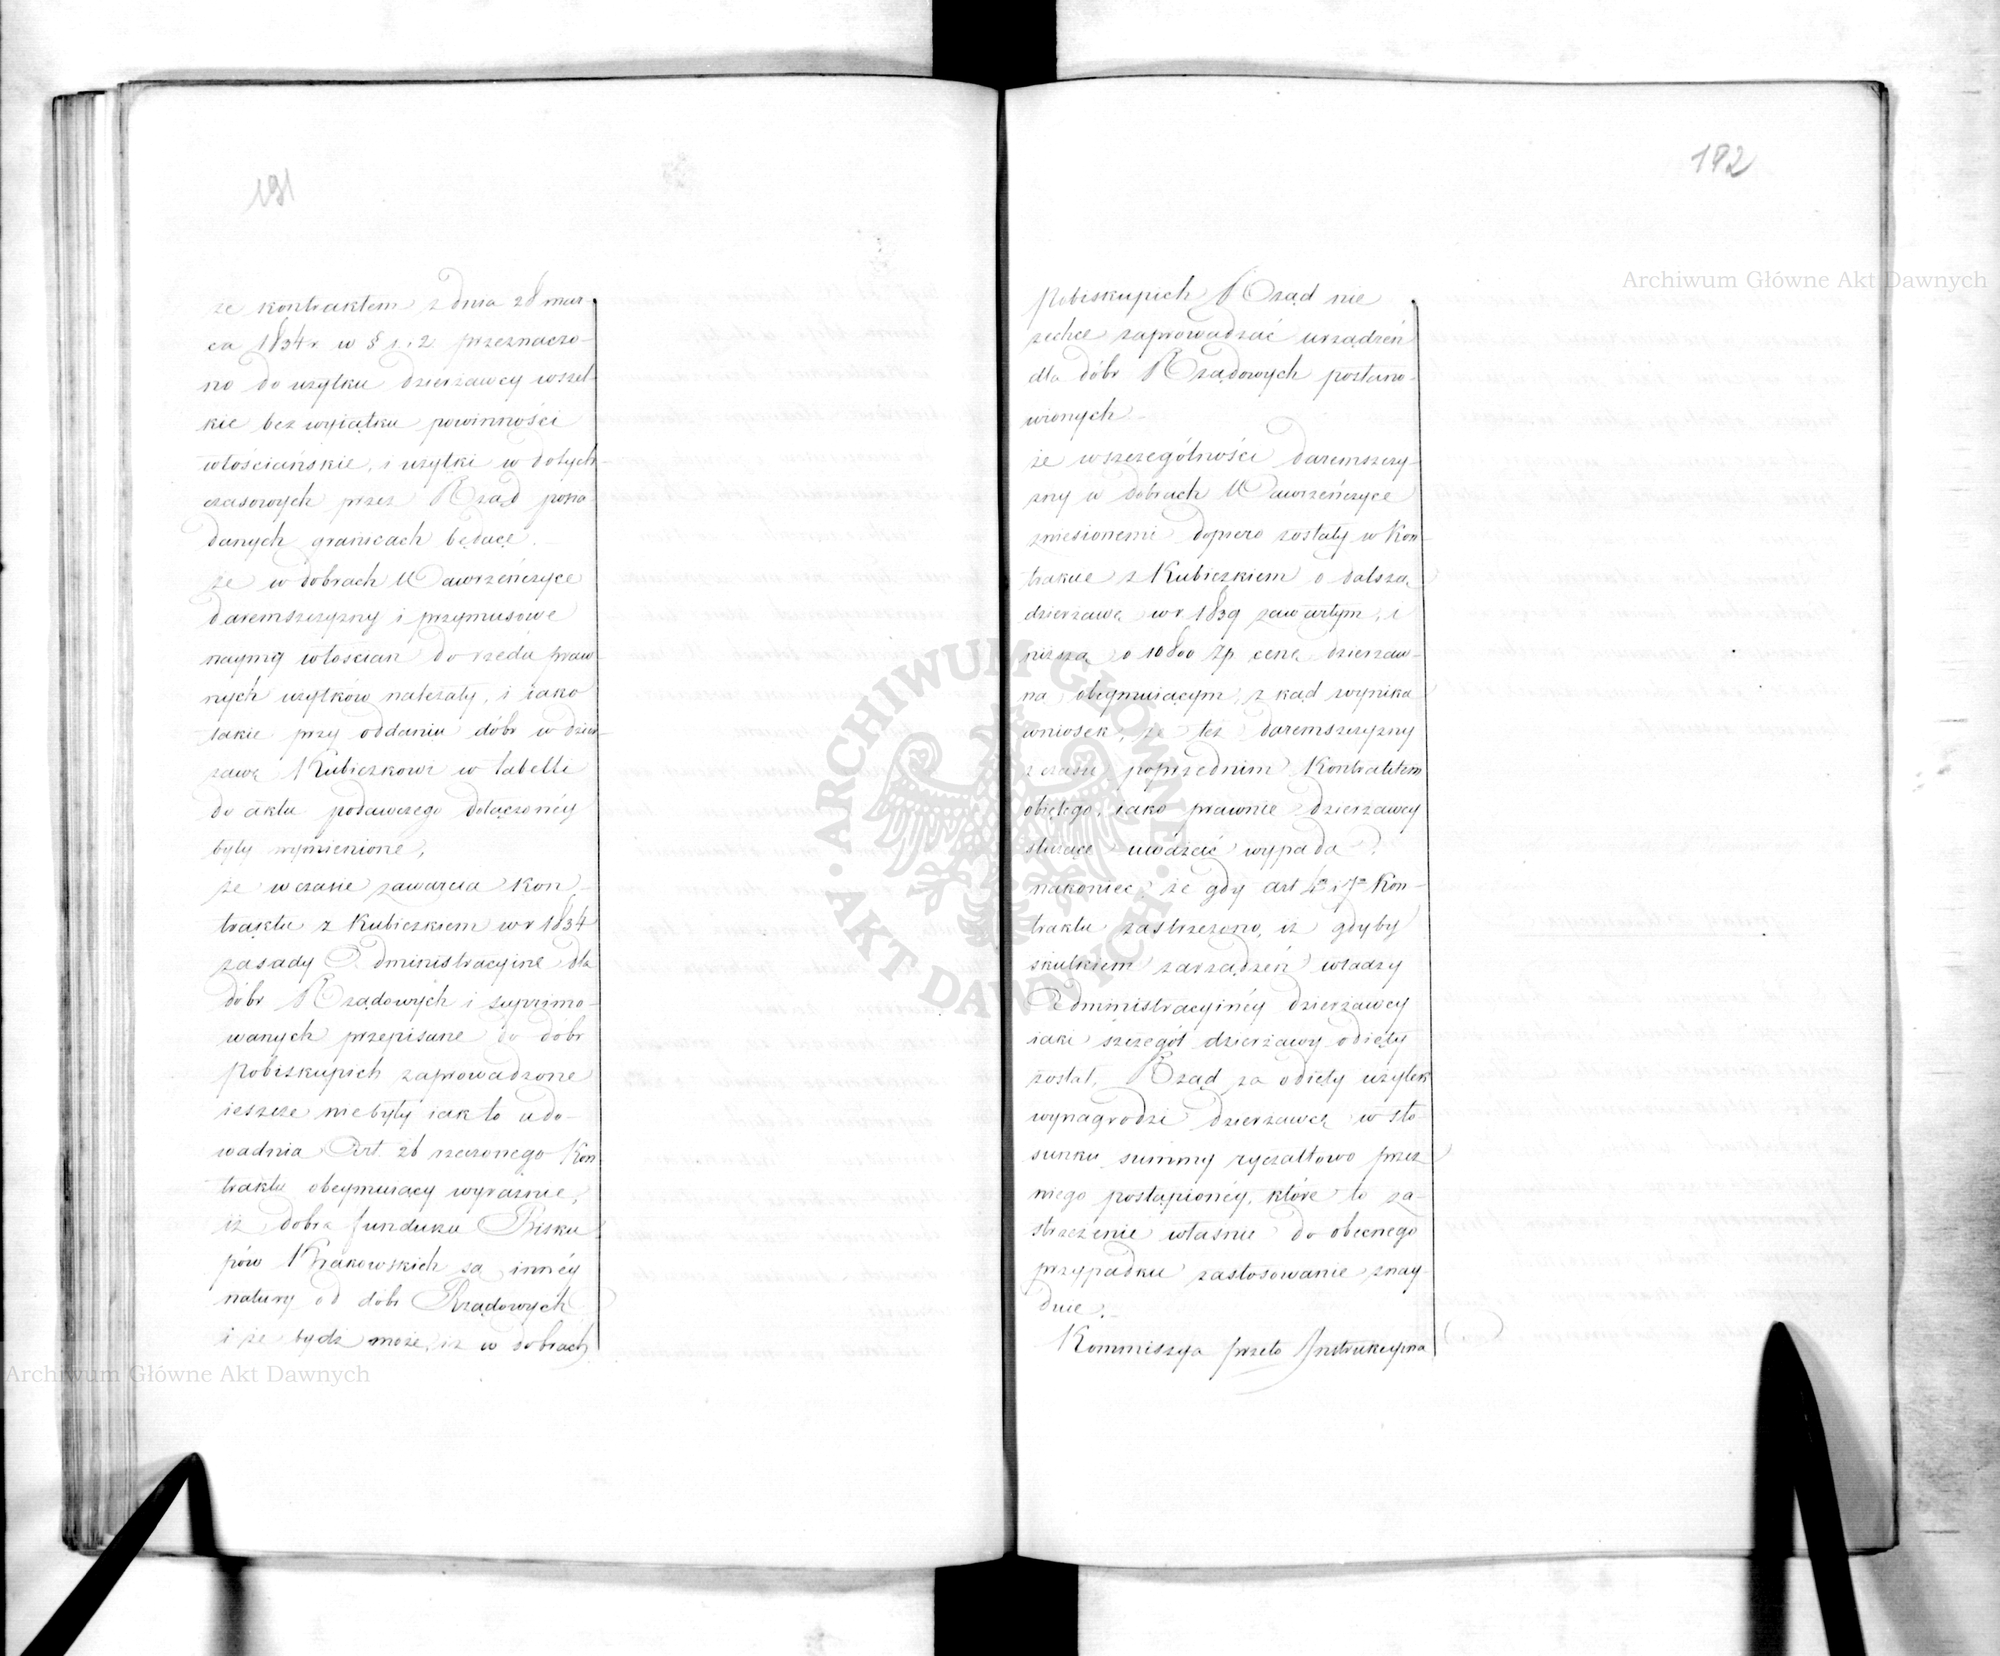 191
że kontraktem z dnia 28 mar-
ca 1834 r. w § 1. i 2 przeznaczo-
no do użytku dzierżawcy wszel-
kie bez wyiątku powinności
włościańskie, i użytki w dotych-
czasowych przez Rząd posia-
danych granicach będące. –
że w dobrach Wawrzeńczyce
daremszczyzny i przymusowe
naymy włościan do rzędu praw-
nych użytków należały, i iako
takie przy oddaniu dóbr w dzier-
żawę Kubiczkowi w tabelli
do aktu podawczego dołączonéy
były wymienione,
że w czasie zawarcia Kon-
traktu z Kubiczkiem w r 1834
zasady Administracyine dla
dóbr Rządowych i suprimo-
wanych przepisane do dóbr
Pobiskupich zaprowadzone
ieszcze nie były iak to udo-
wadnia Art. 26 rzeczonego Kon-
traktu obeymuiący wyraźnie,
iż dobra funduszu Bisku-
pów Krakowskich są innéy
natury od dóbr Rządowych
i że bydź może, iż w dobrach
192
Pobiskupich Rząd nie
zechce zaprowadzać urządzeń
dla dóbr Rządowych postano-
wionych –
że w szczególności daremszczy-
zny w dobrach Wawrzeńczyce
zniesionemi dopiero zostały w Kon-
trakcie z Kubiczkiem o dalszą
dzierżawę w r. 1839 zawartym, i
niższą o 10800 Zp cenę dzierżaw-
ną obeymuiącym, z kąd wynika
wniosek, że też daremszczyzny
z czasu poprzednim Kontraktem
obiętego, iako prawnie dzierżawcy
służące uważać wypada.
nakoniec że gdy art 4m i 7m Kon-
traktu zastrzeżono, iż gdyby
skutkiem zarządzeń władzy
Administracyinéy dzierżawcy
iaki szczegół dzierżawy odięty
został, Rząd za odięty użytek
wynagrodzi dzierżawcę w sto-
sunku summy ryczałtowo przez
niego postąpionéy, które to za-
strzeżenie właśnie do obecnego
przypadku zastosowanie znay-
duie. –
Kommissya przeto Instrukcyina
Archiwum Główne Akt Dawnych
Archiwum Główne Akt Dawnych
ARCHIWUM GŁÓWNE · AKT DAWNYCH ·